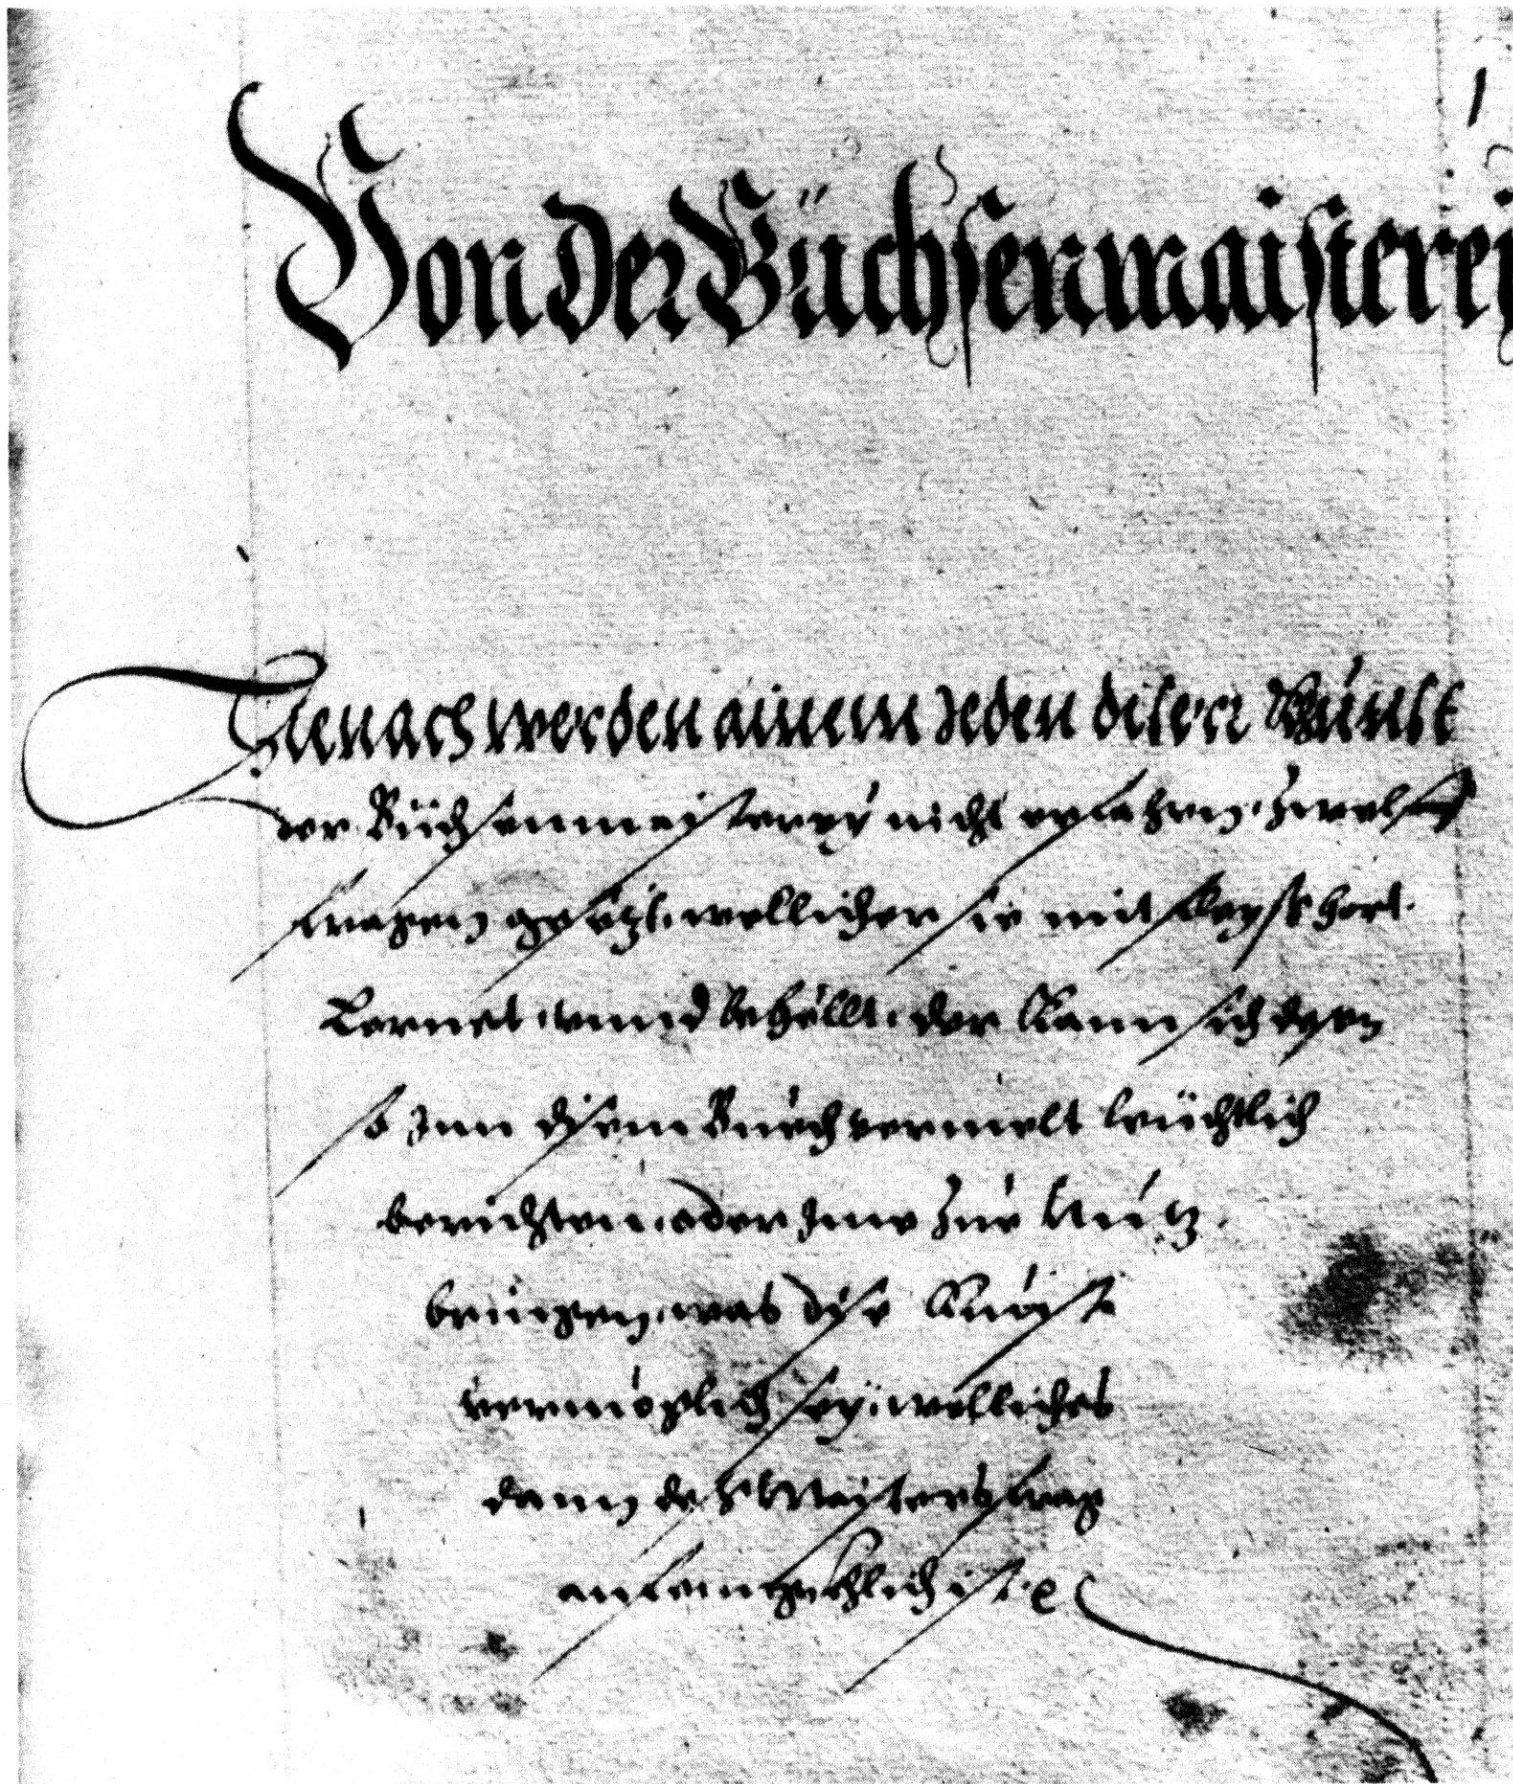 1
Von der Büchsenmaisterej
Hienach werden ainem Jeden diserr Kunst
der Büchsenmaisterey nicht erfahren, Zwelff
fragen gesetzt, wellicher sie mit fleyß hört.
Lernet, vnnd behellt, der kann sich deren
so Inn disem Buech vermelt leüchtlich
berichten, oder Ime Zue Nutz
bringen, was dise Kunst
vermöglich sey, welliches
dann deß Maisters frag
anfengkhlich ist.